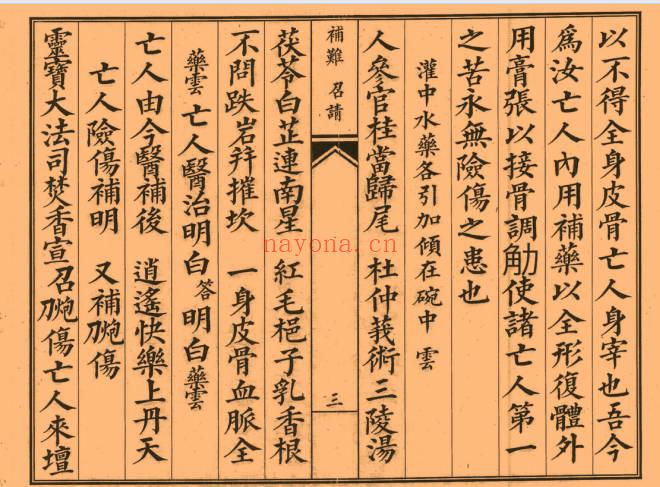 以不得全身皮骨亡人身宰也吾今
爲汝亡人內用補藥以全形復體外
用膏張以接骨調觔使諸亡人第一
之苦永無險傷之患也
灌中水藥各引加傾在碗中 雲
人參官桂當歸尾 杜仲莪術三陵湯
補難 召請
三
茯苓白芷連南星 紅毛梔子乳香根
不問跌岩并摧坎 一身皮骨血脈全
藥雲 亡人醫治明白 答 明白 藥雲
亡人由今醫補後 逍遙快樂上丹天
亡人險傷補明 又補刀炮傷
靈寶大法司焚香宣召刀炮傷亡人來壇
nayona.cn